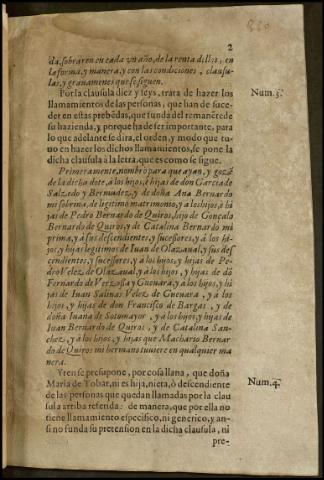 2
da, sobraren en cada vn año, de la renta dellos, en
la forma, y manera, y con las condiciones, clausu-
las, y grauamenes que se siguen.
Por la clausula diez y seys, trata de hazer los
llamamientos de las personas, que han de suce-
der en estas prebẽdas, que funda del remanẽte de
su hazienda, y porque ha de ser importante, para
lo que adelante se dira, el orden, y modo que tu-
uo en hazer los dichos llamamientos, se pone la
dicha clausula à la letra, que es como se sigue.
Primeramente, nombro para que ayan, y gozẽ
de la dicha dote, à los hijos, è hijas de don Garcia de
Salzedo y Bernudez, y de doña Ana Bernardo
mi sobrina, de legitimo matrimonio, y a los hijos, è hi
jas de Pedro Bernardo de Quiros, hijo de Gonçalo
Bernardo de Quiros, y de Catalina Bernardo mi
prima, y à sus descendientes, y sucessores, y à los hi-
jos, y hijas legitimos de Iuan de Olazaual, y sus des
cendientes, y sucessores, y a los hijos, y hijas de Pe-
dro Velez de Olazaual, y à los hijos, y hijas de dõ
Fernando de Verzossa y Gueuara, y à los hijos, y hi
jas de Iuan Salinas Velez de Gueuara, y à los
hijos, y hijas de don Francisco de Bargas, y de
doña Iuana de Sotomayor, y à los hijos, y hijas de
Iuan Bernardo de Quiros, y de Catalina San-
chez, y à los hijos, y hijas que Machario Bernar
do de Quiros mi hermano tuuiere en qualquier ma
nera.
Y ten se presupone, por cosa llana, que doña
Maria de Tobar, ni es hija, nieta, ò descendiente
de las personas que quedan llamadas por la clau
sula arriba referida: de manera, que por ella no
tiene llamamiento especifico, ni generico, y an-
si no funda su pretension en la dicha clausula, ni
pre-
Num. 3.
Num. 4.